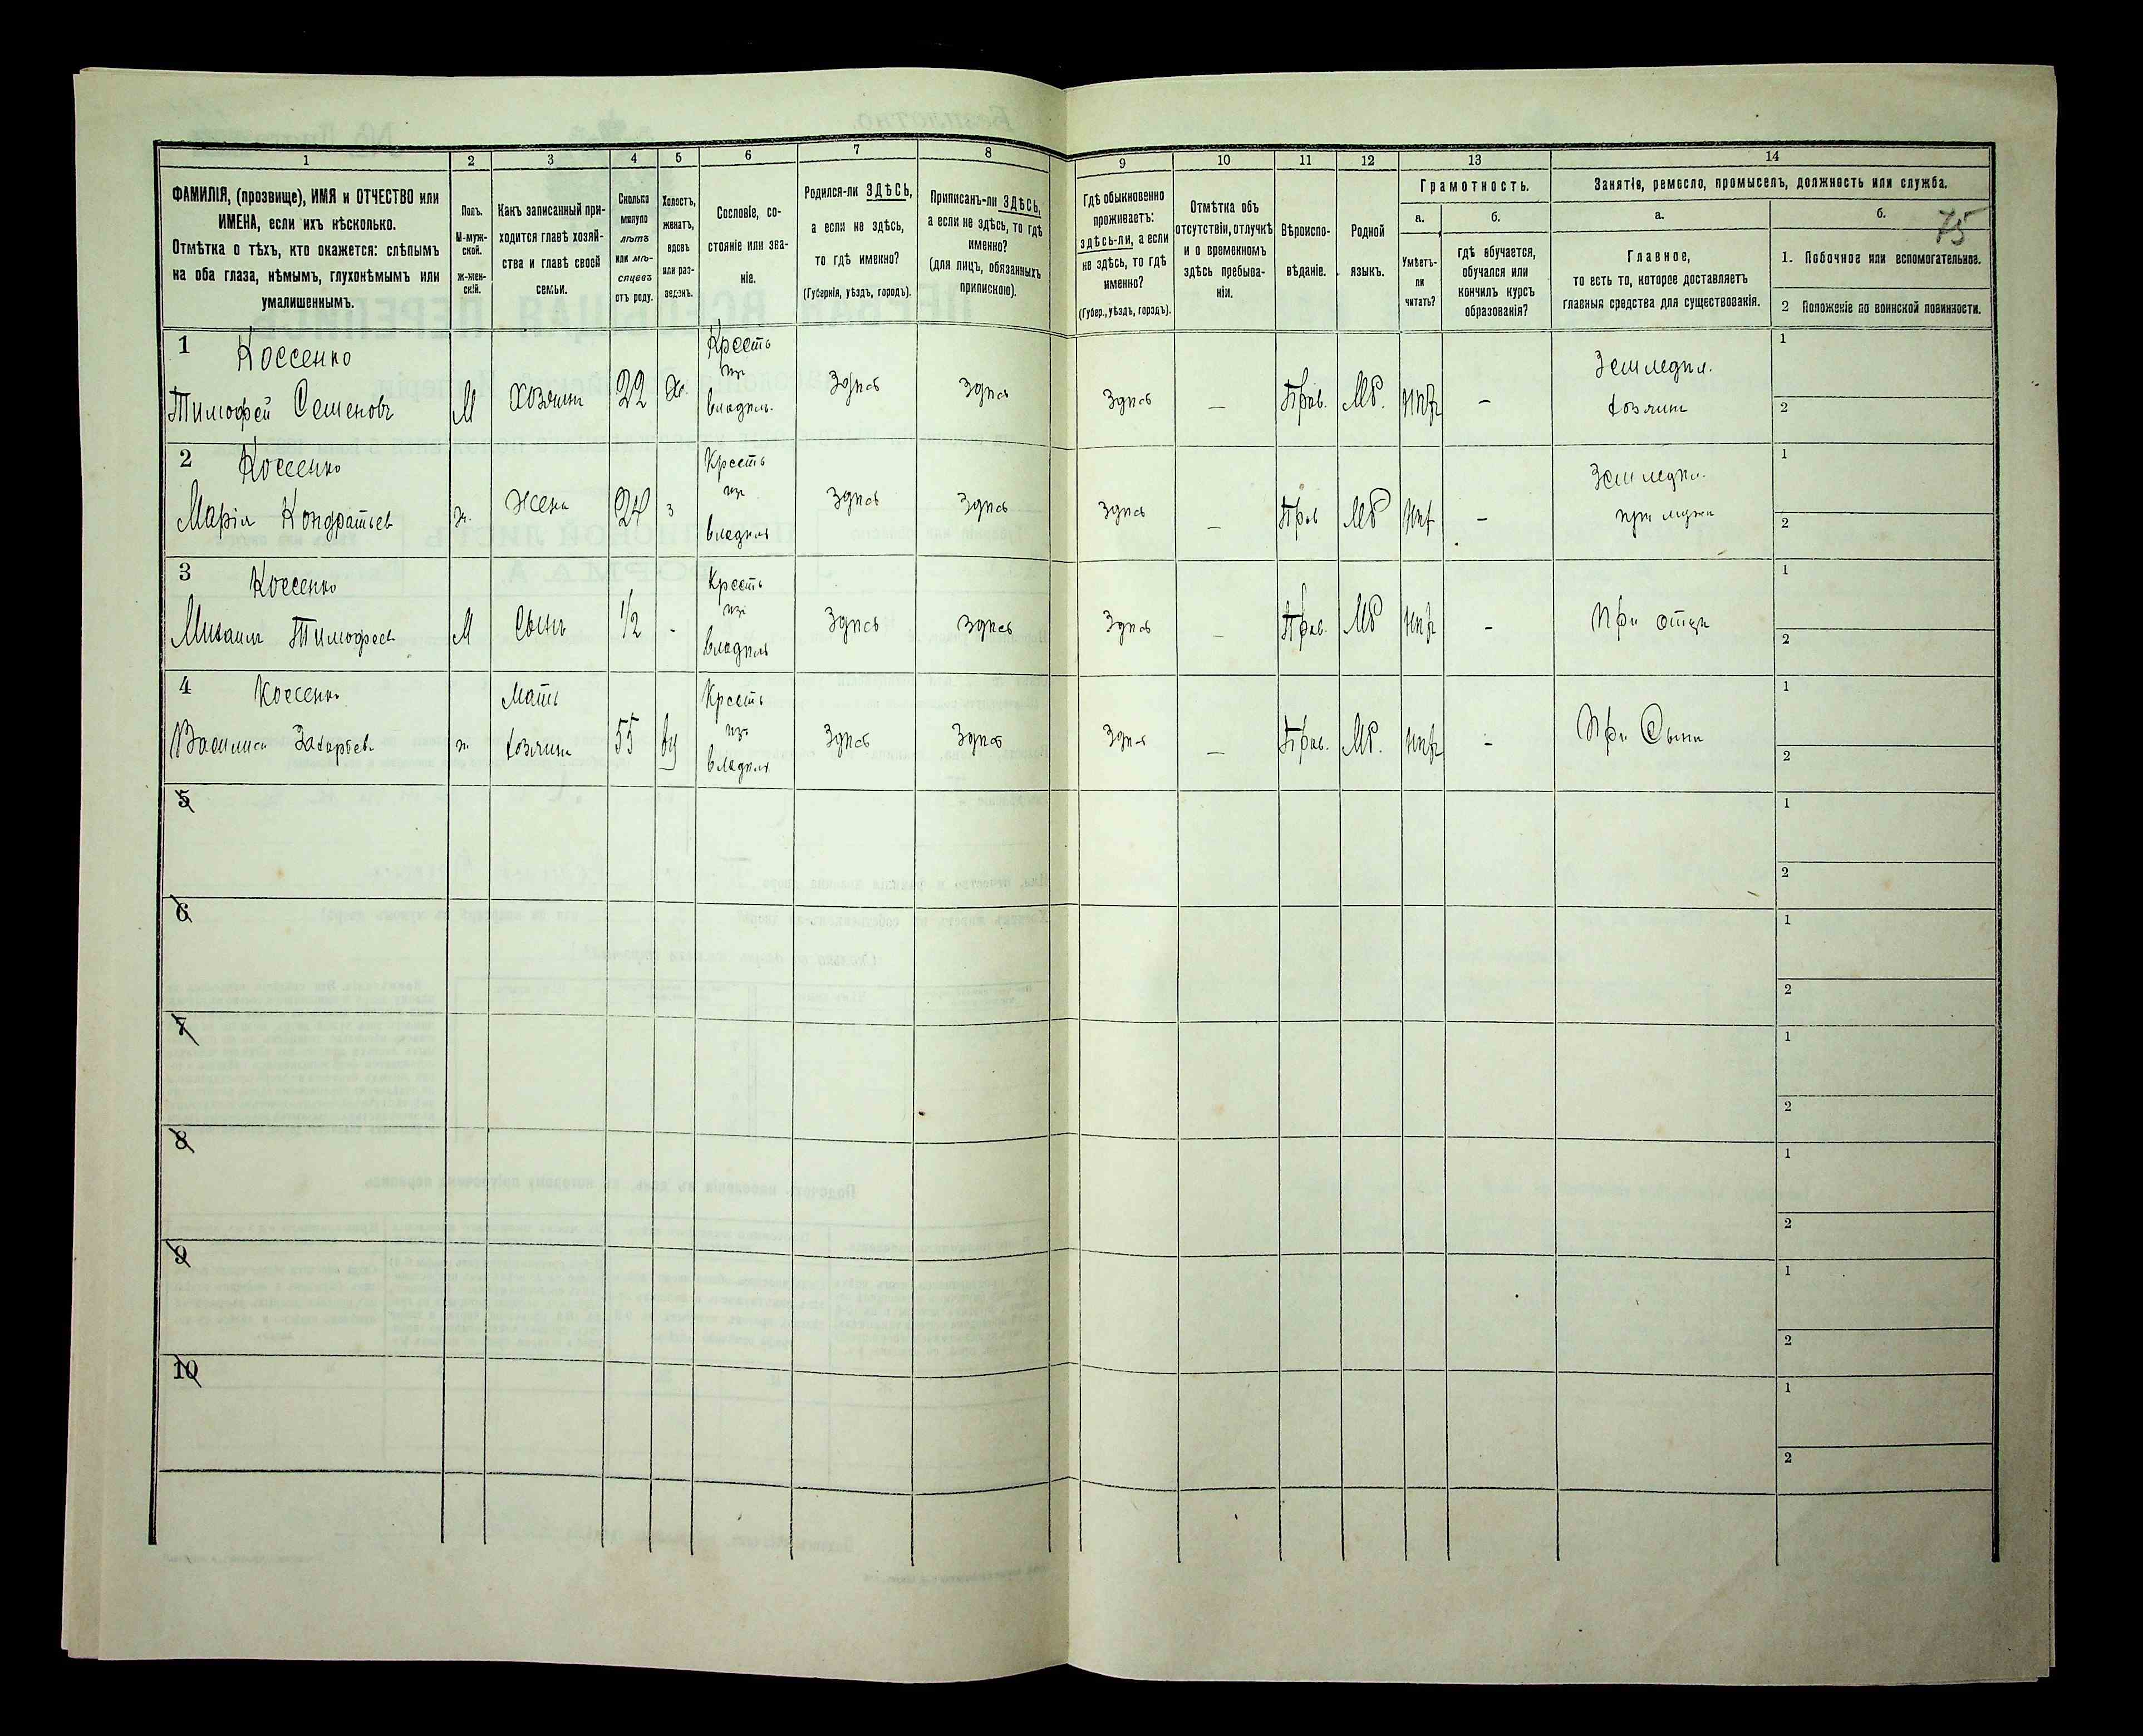 75
1 2 3 4 5 6 7 8 9 10 11 12 13 14
ФАМИЛІЯ, (прозвище), ИМЯ и ОТЧЕСТВО или
ИМЕНА, если ихъ нѣсколько.
Отмѣтка о тѣхъ, кто окажется: слѣпымъ
на оба глаза, нѣмымъ, глухонѣмымъ или
умалишеннымъ.
Полъ.
М-муж-
ской.
ж-жен-
скій.
Какъ записанный при-
ходится главѣ хозяй-
ства и главѣ своей
семьи.
Сколько
минуло
лѣтъ
или мѣ-
сяцевъ
отъ роду.
Холостъ,
женатъ,
вдовъ
или раз-
веденъ.
Сословіе, со-
стояніе или зва-
ніе.
Родился-ли ЗДѢСЬ,
а если не здѣсь,
то гдѣ именно?
(Губернія, уѣздъ, городъ).
Приписанъ-ли ЗДѢСЬ,
а если не здѣсь, то гдѣ
именно?
(для лицъ, обязанныхъ
припискою).
Гдѣ обыкновенно
проживаетъ:
здѣсь-ли, а если
не здѣсь, то гдѣ
именно?
(Губер., уѣздъ, городъ).
Отмѣтка объ
отсутствіи, отлучкѣ
и о временномъ
здѣсь пребыва-
ніи.
Вѣроиспо-
вѣданіе.
Родной
языкъ.
Грамотность.
а.
Умѣетъ-
ли
читать?
б.
гдѣ обучается,
обучался или
кончилъ курсъ
образованія?
Занятіе, ремесло, промыселъ, должность или служба.
а.
Главное,
то есть то, которое доставляетъ
главныя средства для существованія.
б.
1. Побочное или вспомогательное.
2 Положеніе по воинской повинности.
1 Коссенко
Тимофей Семеновъ
М
Хозяинъ
22
Крест
изъ
владѣль.
Здѣсь
Здѣсь
Здѣсь
—
Прав.
МР.
–
Земледѣл.
хозяинъ
1
2
2 Коссенко
Марія Кондратьев
ж.
Жена
24
з
Крест
изъ
владѣль
Здѣсь
Здѣсь
Здѣсь
—
Прав
МР
–
Земледѣл.
при мужѣ
1
2
3 Коссенко
Михаилъ Тимофеев
М
Сынъ
1/2
-
Крест
изъ
владѣль
Здѣсь
Здѣсь
Здѣсь
—
Прав.
МР
–
При отцѣ
1
2
4 Коссенко
Василиса Захарьев
ж.
Мать
хозяина
55
вд
Крест
изъ
владѣль
Здѣсь
Здѣсь
Здѣсь
—
Прав.
МР.
–
При Сынѣ
1
2
5
1
2
6
1
2
7
1
2
8
1
2
9
1
2
10
1
2